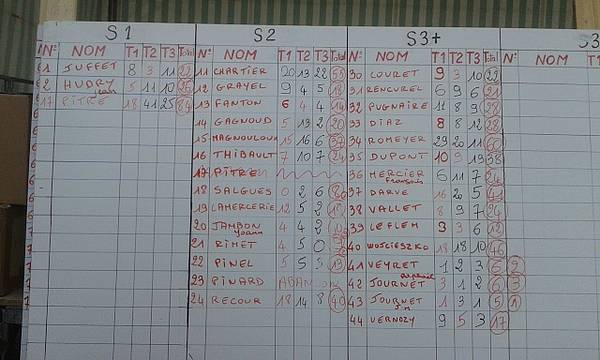 S1
N° NOM T1 T2 T3 Total
1 JUFFET 8 3 11 22
2 HUDRY Jean 5 11 10 26
17 PITRE 18 41 25 84
S2
N° NOM T1 T2 T3 Total
11 CHARTIER 20 13 22 55
12 GRAYEL 9 4 5 18
13 FANTON 6 4 4 14
14 GAGNOUD 5 13 2 20
15 MAGNOULOUX 15 16 6 37
16 THIBAULT 7 10 7 24
17 PITRE
18 SALGUES 0 2 6
19 LAMERCERIE 12 5 2
20 JAMBON Yoann 4 4 2
21 RIMET 4 5 0
22 PINEL 5 5 3 13
23 PINARD ABANDON
24 RECOUR 18 14 8 40
S3+
N° NOM T1 T2 T3 Total
30 LOURET 9 3 10 22
31 RENCUREL 6 9 6 21
32 PUGNAIRE 11 8 9 28
33 DIAZ 8 8 12 28
34 ROMEYER 29 20 11 60
35 DUPONT 10 9 38
36 MERCIER François 6 11 7 24
37 DARVE 16 20 5 41
38 VALLET 8 9 7 24
39 LEFLEM 3 3 6 12
40 WOJCIESZKO 18 18 10 46
41 VEYRET 1 2 3 6 2
42 JOURNET 3 1 2 6 3
43 JOURNET 1 3 1 5 1
44 VERNOZY 9 5 3 17
S3
N° NOM T1